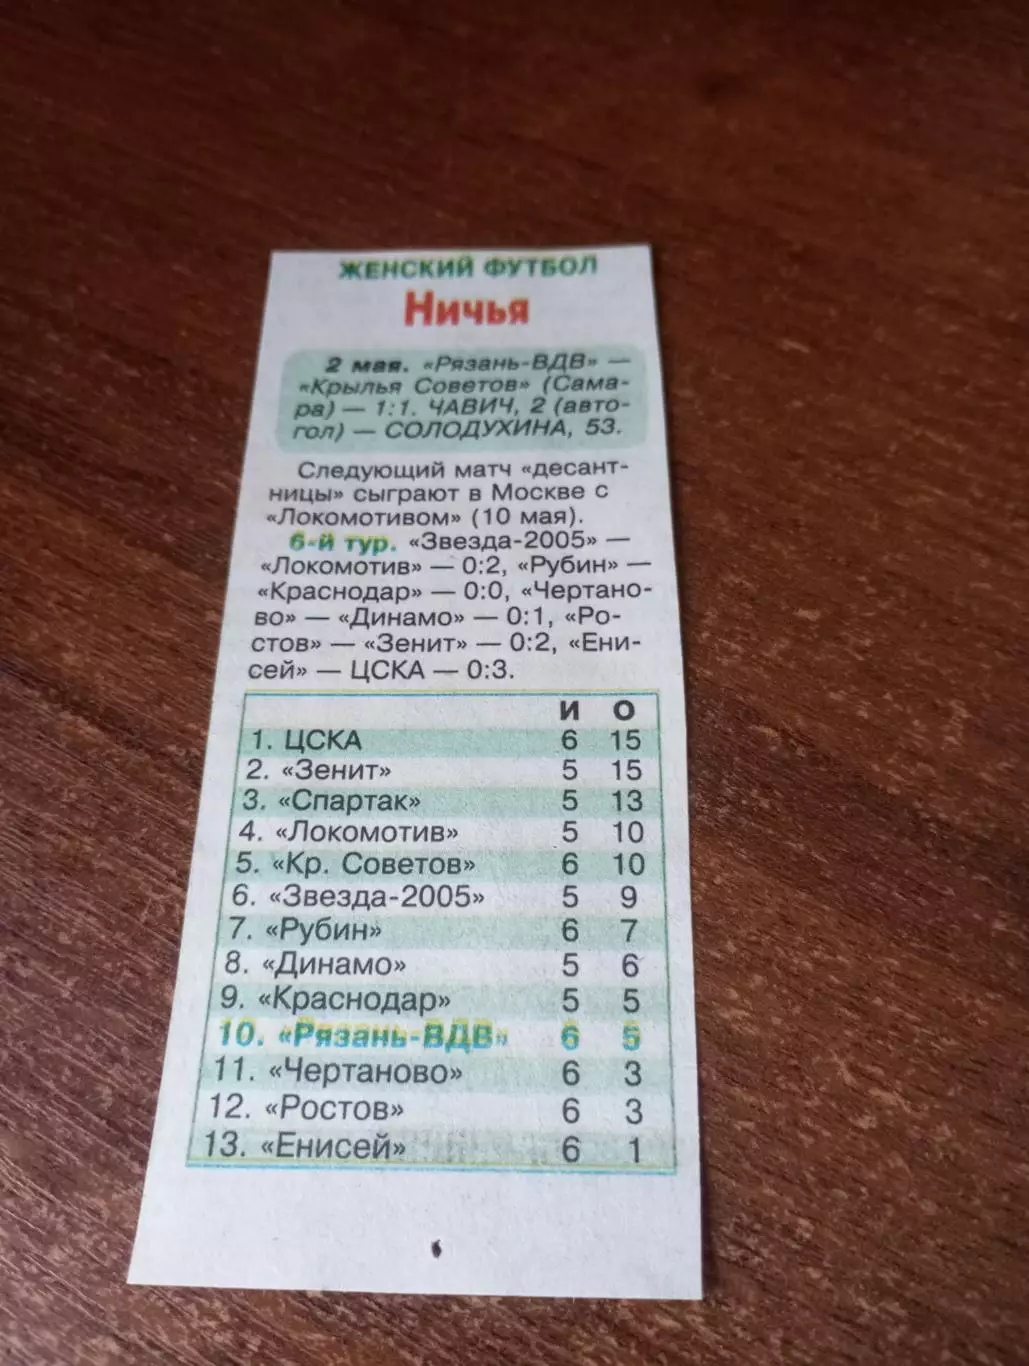 ЖЕНСКИЙ ФУТБОЛ
Ничья
2 мая. «Рязань-ВДВ» —
«Крылья Советов» (Сама-
ра) — 1:1. ЧАВИЧ, 2 (авто-
гол) — СОЛОДУХИНА, 53.
Следующий матч «десант-
ницы» сыграют в Москве с
«Локомотивом» (10 мая).
6-й тур. «Звезда-2005» —
«Локомотив» — 0:2, «Рубин» —
«Краснодар» — 0:0, «Чертано-
во» — «Динамо» — 0:1, «Ро-
стов» — «Зенит» — 0:2, «Ени-
сей» — ЦСКА — 0:3.
И О
1. ЦСКА 6 15
2. «Зенит» 5 15
3. «Спартак» 5 13
4. «Локомотив» 5 10
5. «Кр. Советов» 6 10
6. «Звезда-2005» 5 9
7. «Рубин» 6 7
8. «Динамо» 5 6
9. «Краснодар» 5 5
10. «Рязань-ВДВ» 6 5
11. «Чертаново» 6 3
12. «Ростов» 6 3
13. «Енисей» 6 1